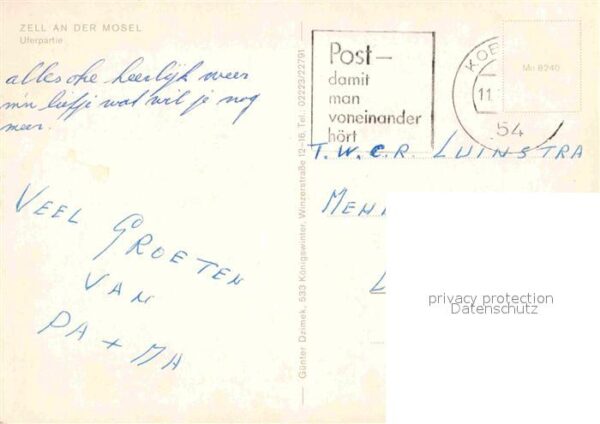 ZELL AN DER MOSEL
Uferpartie
alles oke heerlijk weer
m'n liefje wat wil je nog
meer.
VEEL GROETEN
VAN
PA + MA
Günter Dzimek, 533 Königswinter, Winzerstraße 12-16, Tel.: 02223/22791
Post –
damit
man
voneinander
hört
KOB
11.
54
Mo 8240
T.W.C.R. LUINSTRA
privacy protection
Datenschutz